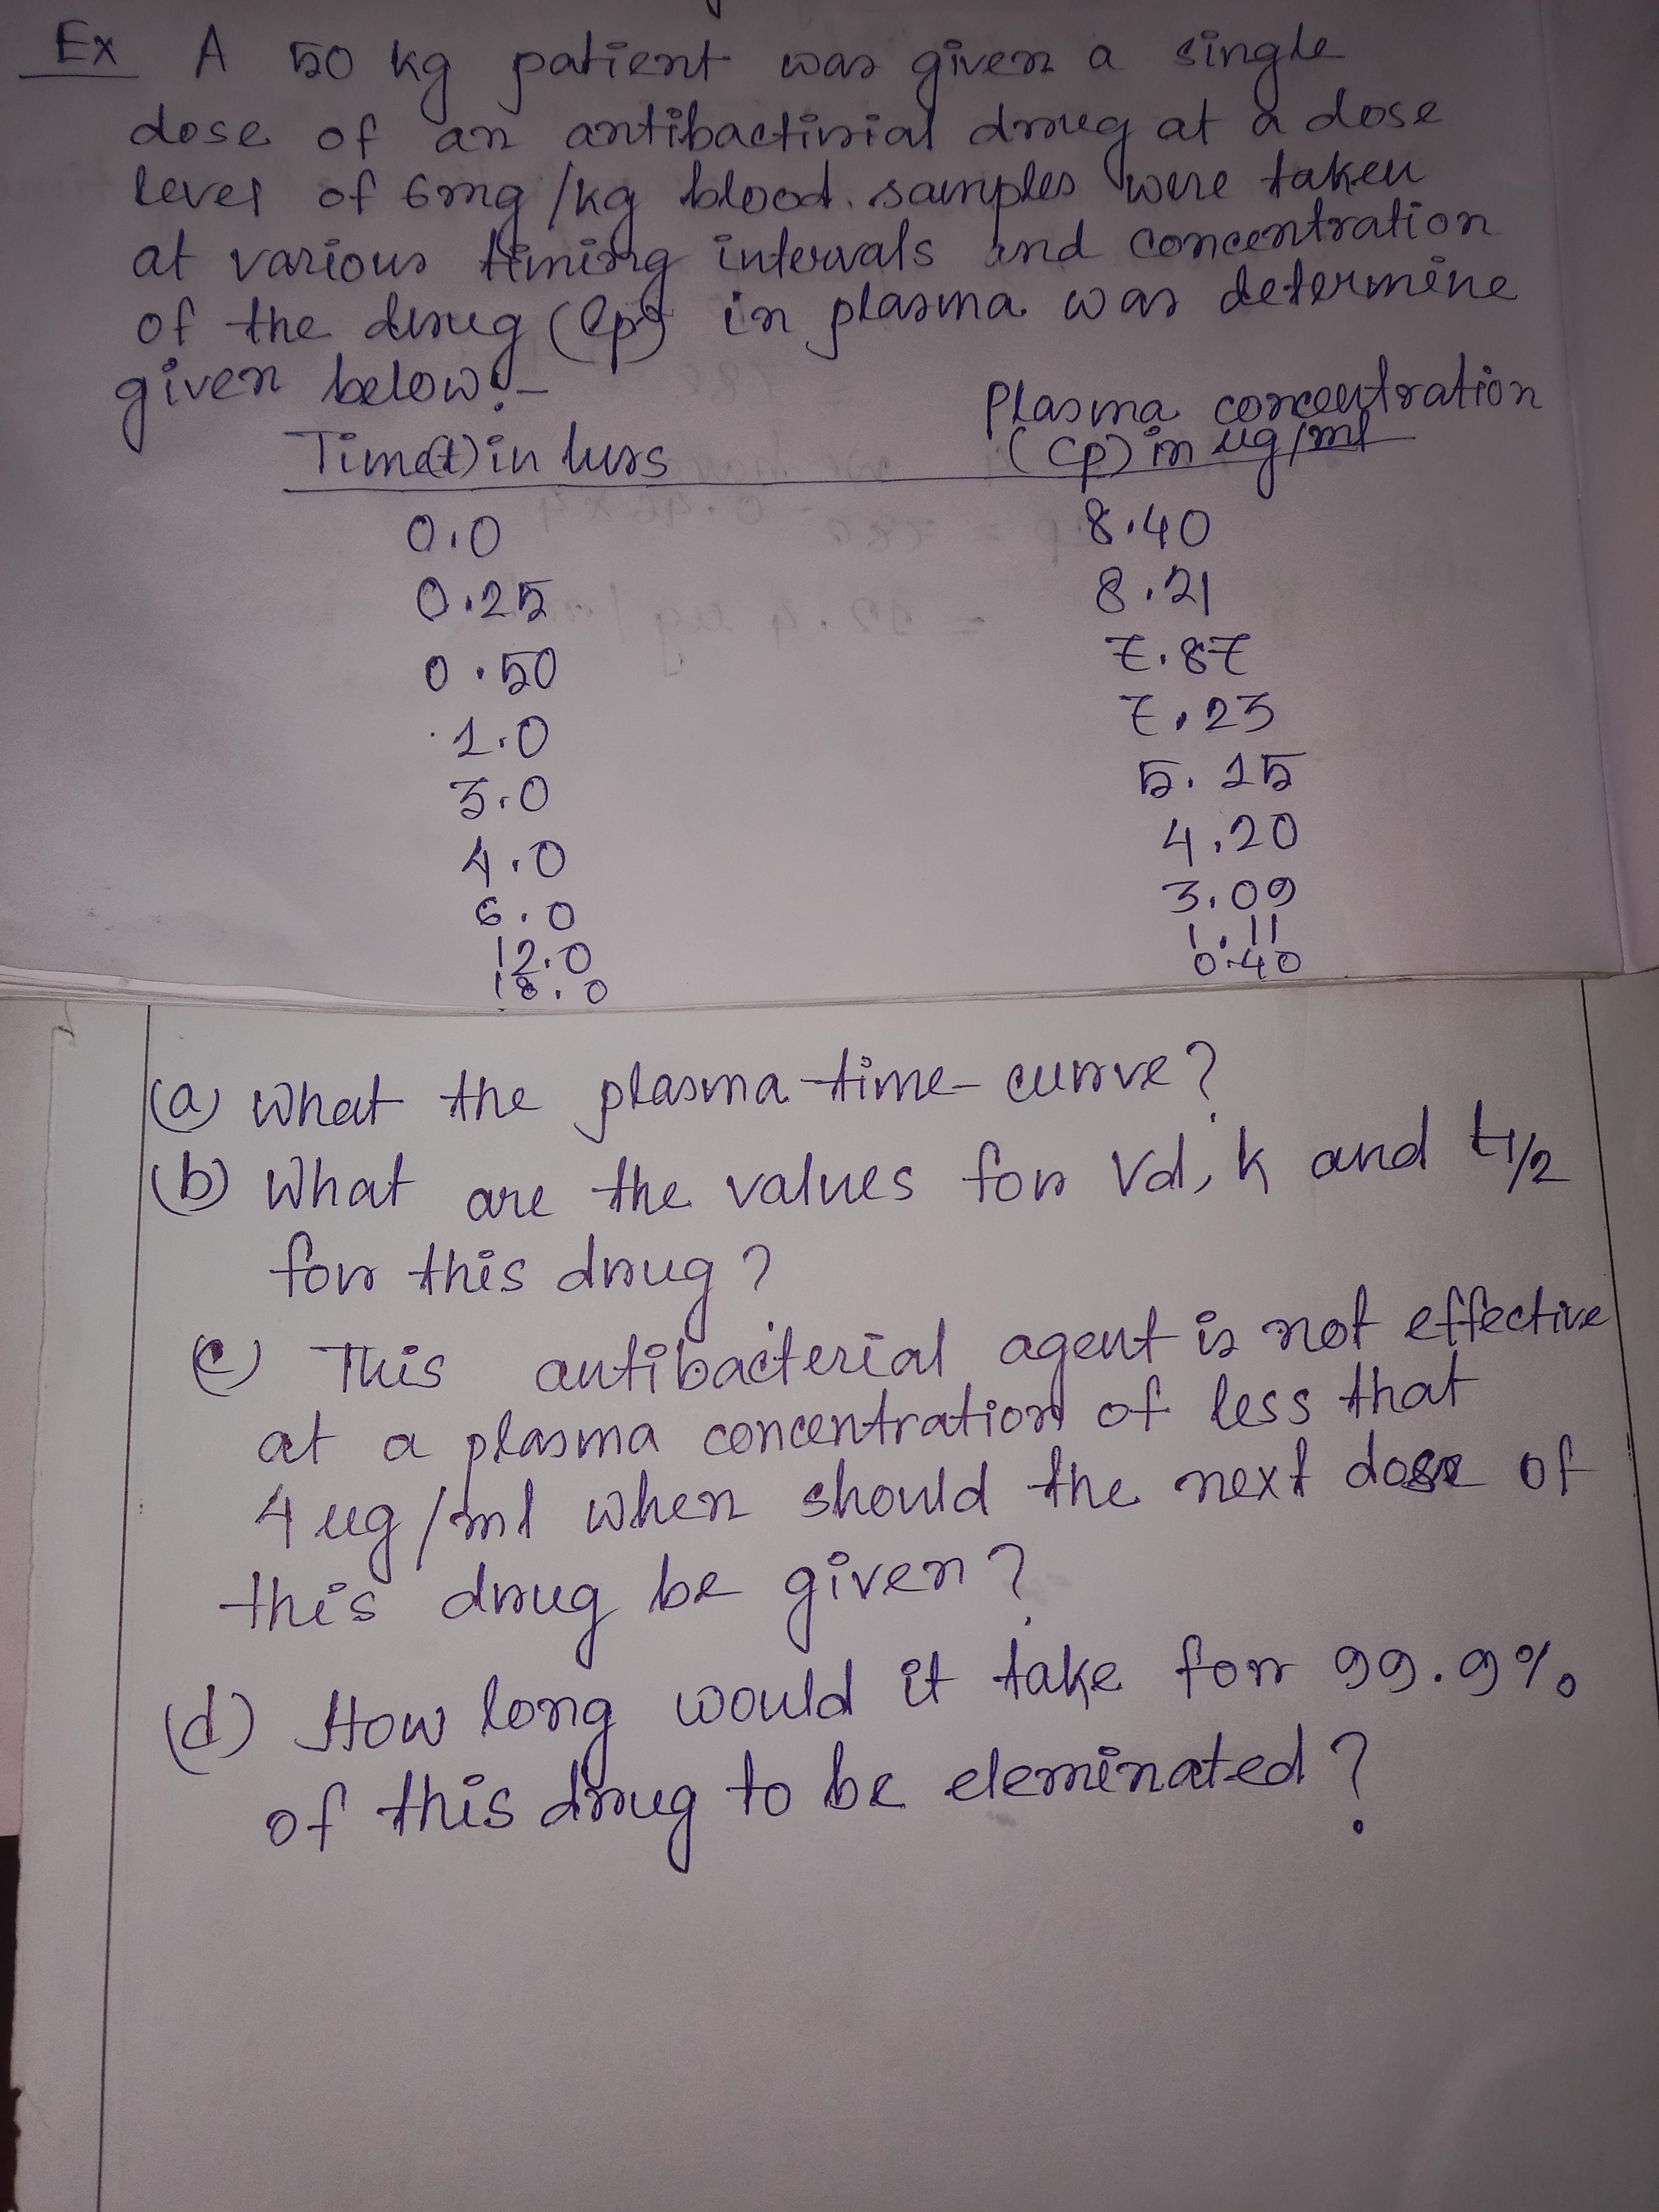 Ex A 50 kg patient was given a single
dose of an antibactirial drug at a dose
level of 6mg /kg blood. samples were taken
at various timing intervals and concentration
of the drug (Cp) in plasma was determine
given below:-
Time(t) in hurs
Plasma concentration
(Cp) in ug/ml
0.0 8.40
0.25 8.21
0.50 7.87
1.0 7.23
3.0 5.15
4.0 4.20
6.0 3.09
12.0 1.11
18.0 0.40
(a) What the plasma-time-curve?
(b) What are the values for Vd, k and t1/2
for this drug?
(c) This antibacterial agent is not effective
at a plasma concentration of less that
4 ug/ml when should the next dose of
this drug be given?
(d) How long would it take for 99.9%
of this drug to be eleminated?